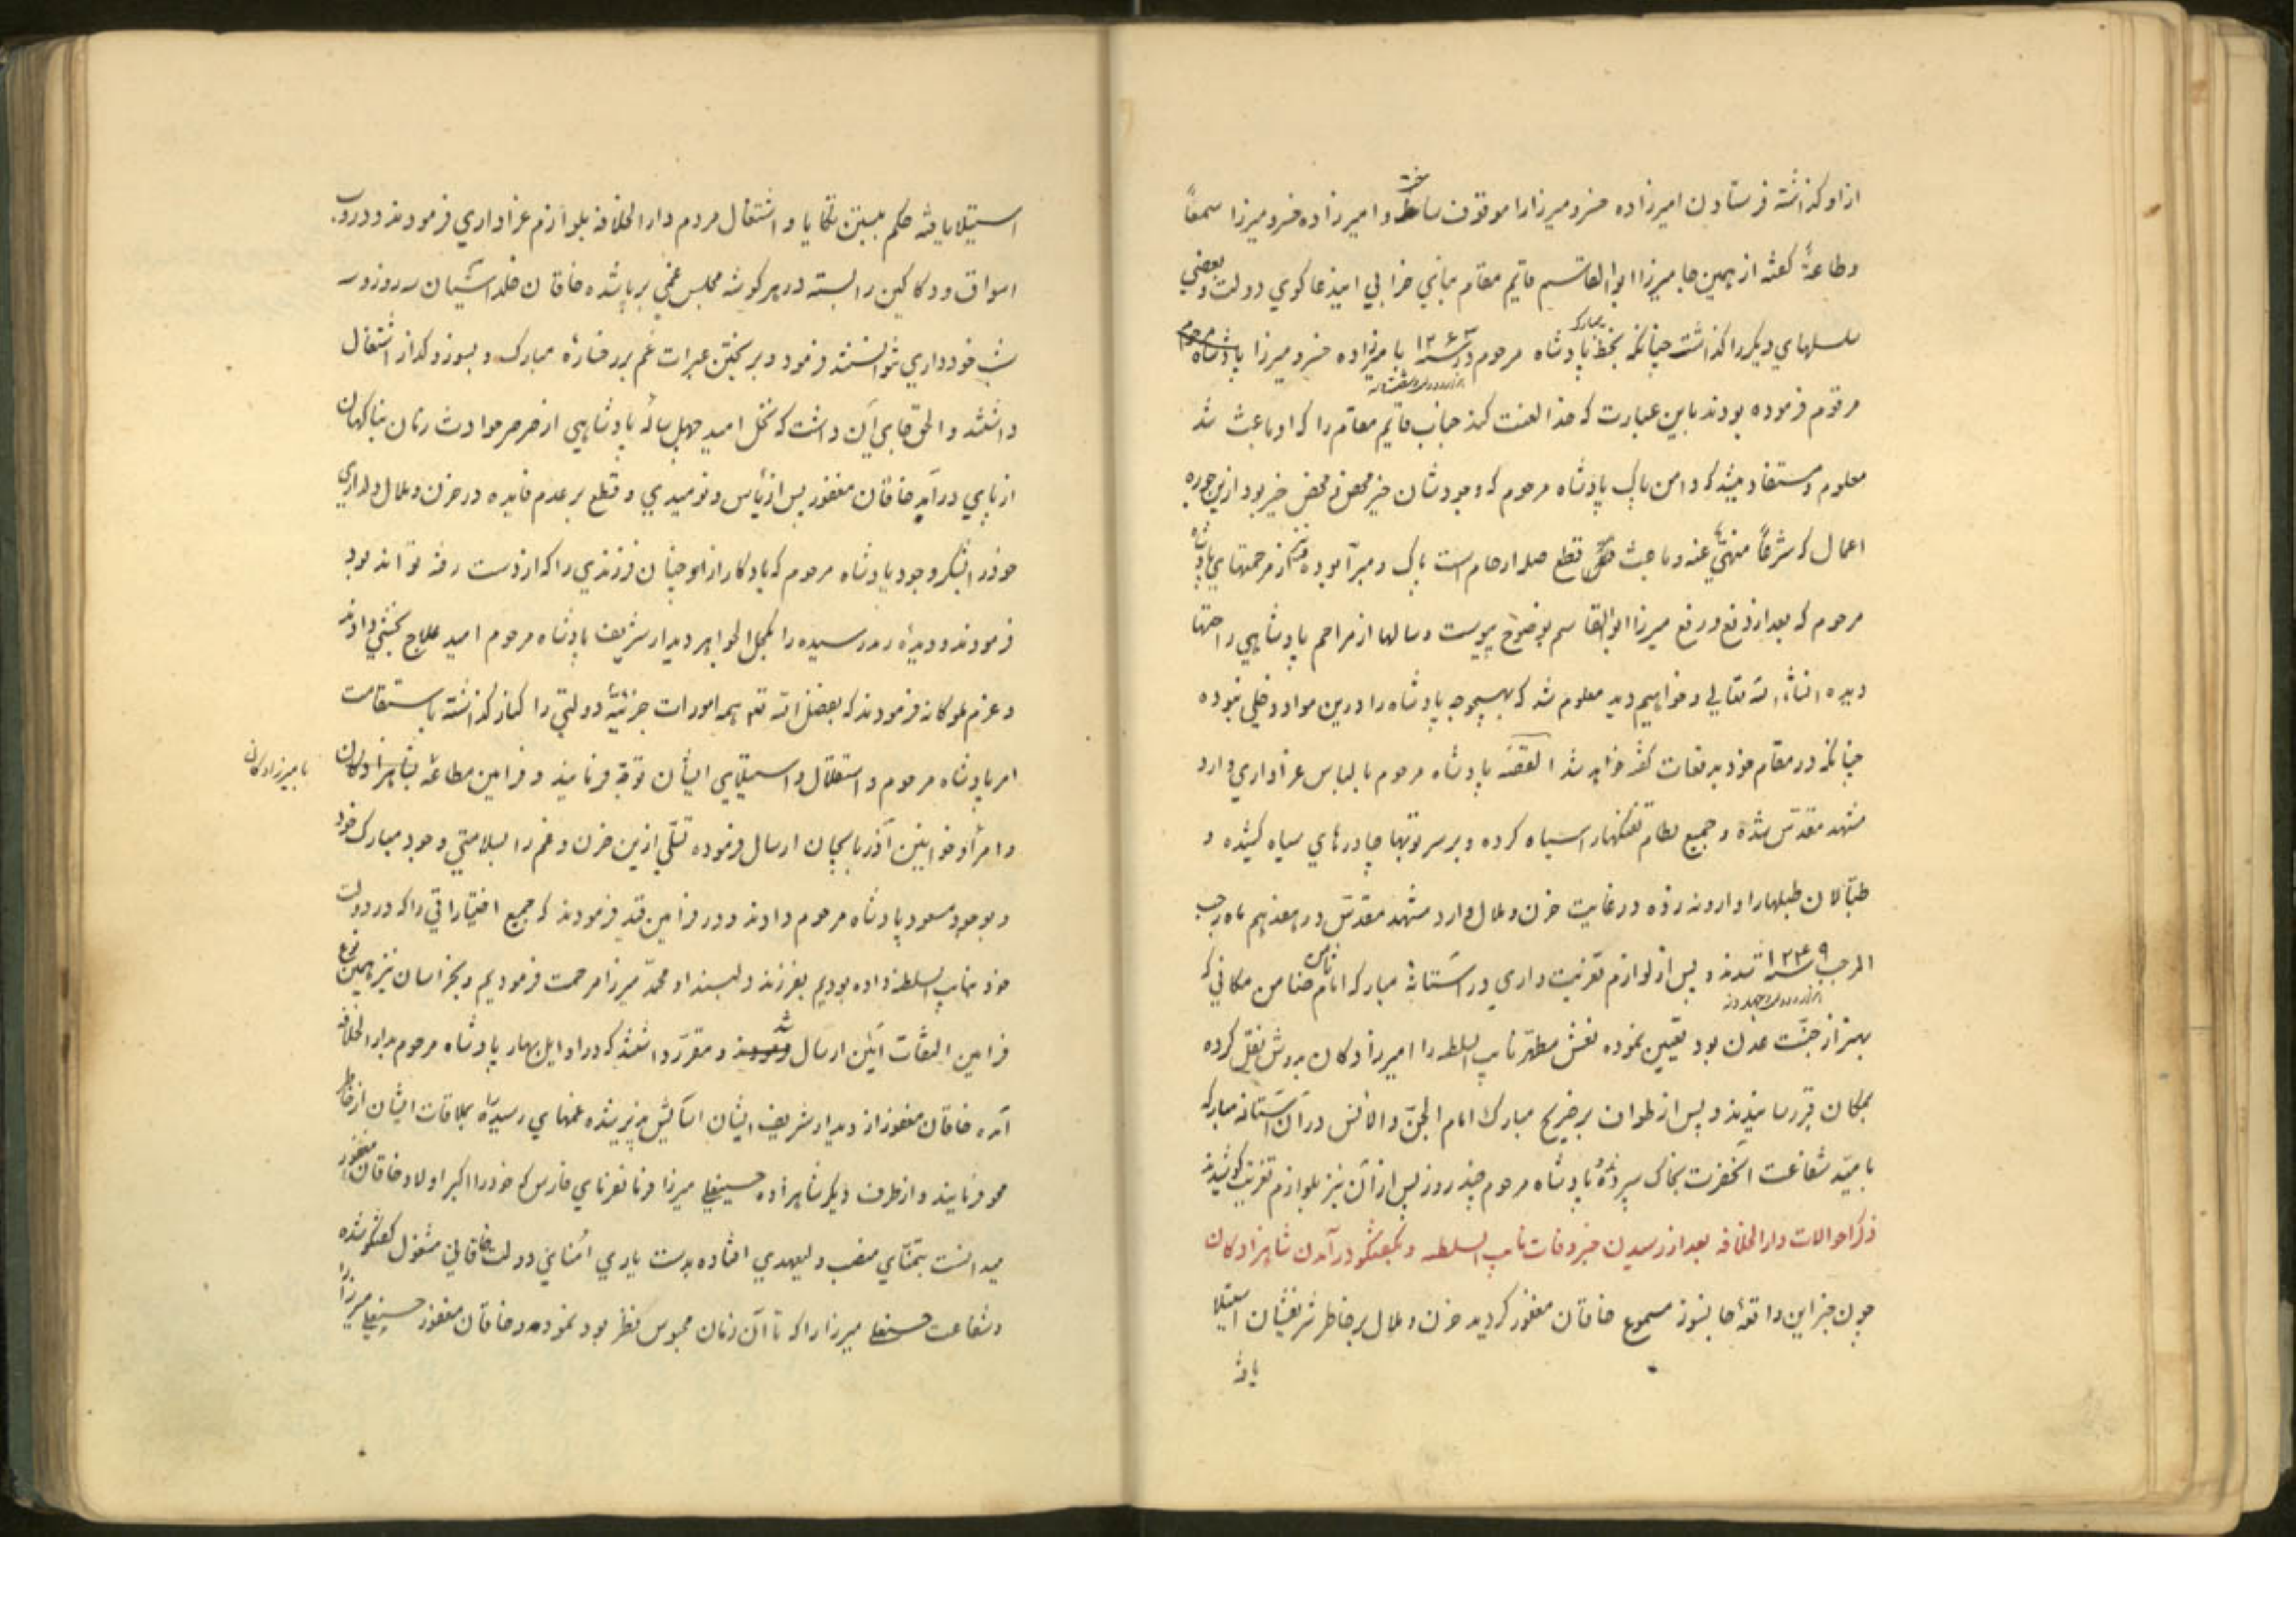 از او گذشته فرستادن امیرزاده خسرو میرزا را موقوف ساخته و امیرزاده خسرو میرزا سمعاً
و طاعةً گفته از همین جا میرزا ابوالقاسم قایم مقام بنای خرابی این دعاگوی دولت و بعضی
سلسلهای دیگر را گذاشت چنانکه بخط مبارک پادشاه مرحوم در سنه ۱۲۶۳ بامیرزاده خسرو میرزا
مرقوم فرموده بودند باین عبارت که خدا لعنت کند جناب قایم مقام را که او باعث شد
معلوم و مستفاد میشد که دامن پاک پادشاه مرحوم که وجودشان خیر محض و محض خیر بود ازین جوره
اعمال که شرعاً منهی عنه و باعث قطع صله ارحام است پاک و مبرّا بوده از مرحمتهای پادشاه
مرحوم که بعد از وقع و رفع میرزا ابوالقاسم بوضوح پیوست و سالها از مراحم پادشاهی راحتها
دیده انشاء الله تعالی و خواهیم دید معلوم شد که بهیچوجه پادشاه را درین مواد دخلی نبوده
چنانکه در مقام خود بدفعات گفته خواهد شد القصه پادشاه مرحوم با لباس عزاداری وارد
مشهد مقدّس شده و جمیع نظام تفنگها را سیاه کرده و بر سر توپها چادرهای سیاه کشیده و
طبّالان طبلها را وارونه زده در غایت حزن و ملال وارد مشهد مقدّس در هفدهم ماه رجب
المرجب سنه ۱۲۴۹ شدند و پس از لوازم تعزیت داری در آستانه مبارکه امام ثامن ضامن مکانی که
بهتر از جنّت عدن بود تعیین نموده نعش مطهّر نایب السلطنه را امیرزادگان بدوش نقل کرده
بمکان قبر رسانیدند و پس از طواف بر ضریح مبارک امام الجنّ و الانس در آن آستانه مبارکه
بامیّد شفاعت آنحضرت بخاک سپرده پادشاه مرحوم چند روز پس از آن نیز بلوازم تعزیت کوشیدند
ذکر احوالات دارالخلافه بعد از رسیدن خبر وفات نایب السلطنه و بگفتگو در آمدن شاهزادگان
چون خبر این واقعهٔ جانسوز مسموع خاقان مغفور گردید حزن و ملال بر خاطر شریفشان استیلا
یافته
استیلا یافته حکم ببستن تکایا و اشتغال مردم دارالخلافه بلوازم عزاداری فرمودند و درب
اسواق و دکاکین را بسته در هر گوشه مجلس غمی برپا شده خاقان خلد آشیان سه روز و سه
شب خودداری نتوانستند فرمود و بریختن عبرات غم بر رخسارهٔ مبارک و بسوز و گداز اشتغال
داشتند و الحق جای آن داشت که نخل امید چهل ساله پادشاهی از صرصر حوادث زمان بناگهان
از پای در آید خاقان مغفور پس از یأس و نومیدی و قطع بر عدم فایده در حزن و ملال دلداری
خود را بشکر وجود پادشاه مرحوم که یادگار از انچنان فرزندی را که از دست رفته تواند بود
فرمودند و دیدهٔ رمد رسیده را بکحل الجواهر دیدار شریف پادشاه مرحوم امید علاج بخشی دادند
و عزم ملوکانه فرمودند که بفضل الله تعالی همه امورات جزئیّه دولتی را کنار گذاشته باستقامت
امر پادشاه مرحوم و استقلال و استیلای ایشان توجّه فرمایند و فرامین مطاعه بشاهزادگان
بامیرزادگان
و امرأ و خوانین آذربایجان ارسال فرموده تسلّی ازین حزن و غم را بسلامتی وجود مبارک خود
و بوجود مسعود پادشاه مرحوم دادند و در فرامین قید فرمودند که جمیع اختیاراتی را که در دولت
خود بنایب السلطنه داده بودیم بفرزند دلبند او محمّد میرزا مرحمت فرمودیم و بخراسان نیز بهمین نوع
فرامین التفات آئین ارسال شد و مقرّر داشتند که در اوایل بهار پادشاه مرحوم بدارالخلافه
آمده خاقان مغفور از دیدار شریف ایشان آسایش پذیر شده غمهای رسیده را بملاقات ایشان از خاطر
محو فرمایند و از طرف دیگر شاهزاده حسینعلی میرزا فرمانفرمای فارس که خود را اکبر اولاد خاقان مغفور
میدانست بتمنّای منصب ولیعهدی افتاده بدست یاری امنای دولت خاقانی مشغول گفتگو شده
و شفاعت حسنعلی میرزا را که تا آن زمان محبوس نظر بود نموده و خاقان مغفور حسینعلی میرزا را